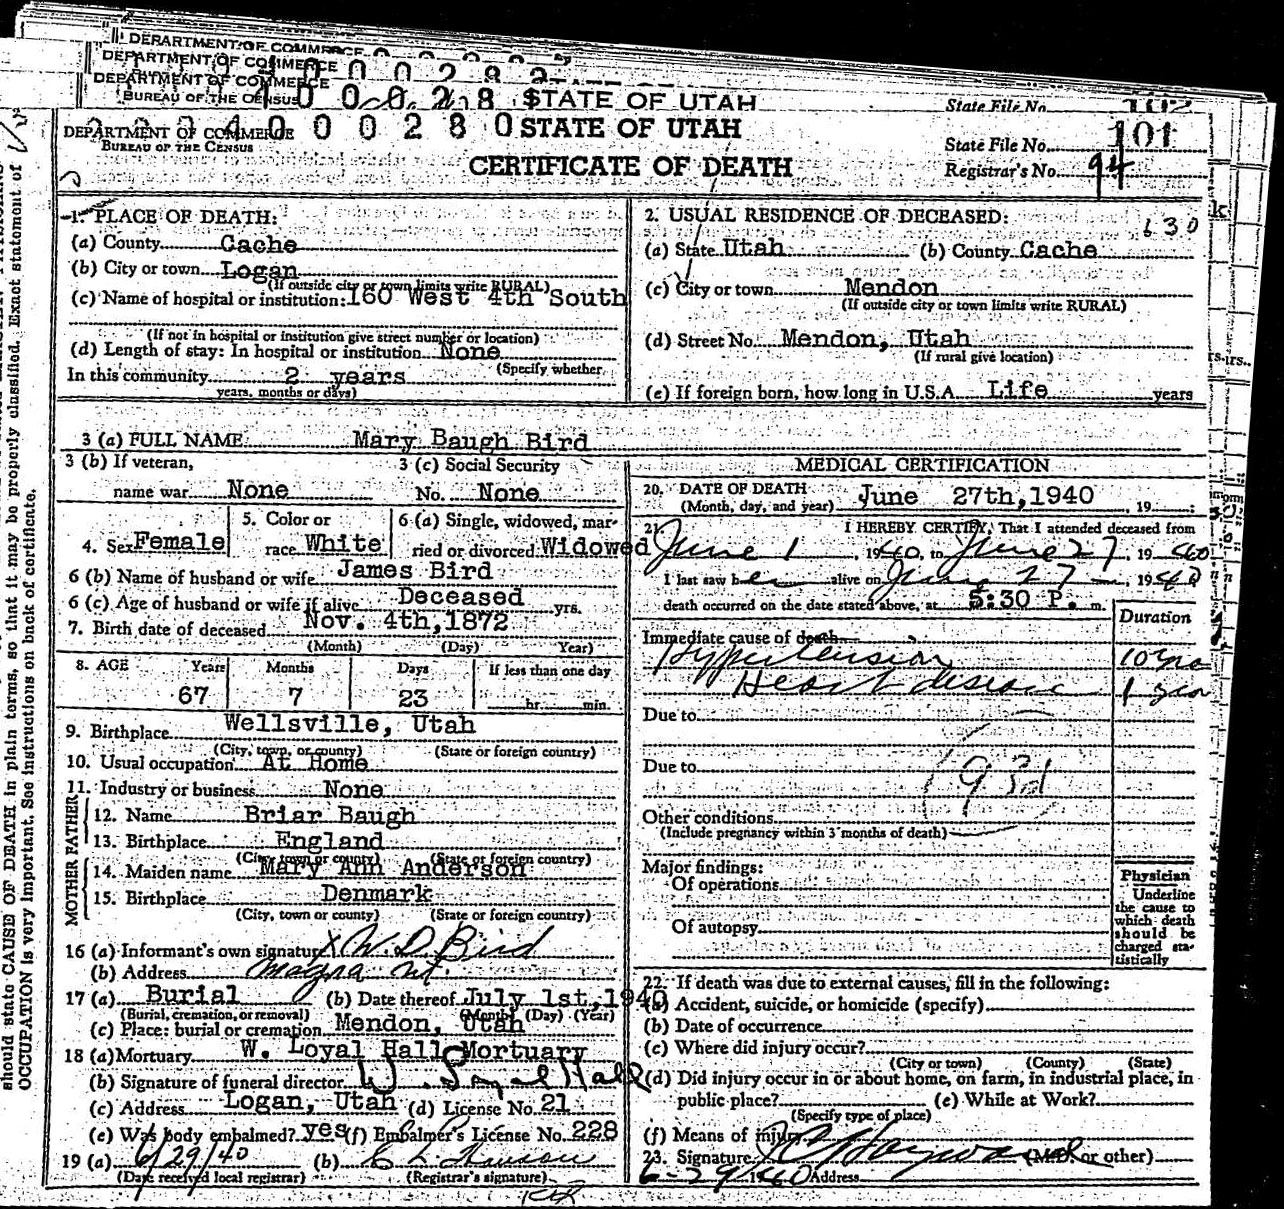 DEPARTMENT OF COMMERCE
DEPARTMENT OF COMMERCE
DEPARTMENT OF COMMERCE
BUREAU OF THE CENSUS
STATE OF UTAH
State File No. 102
DEPARTMENT OF COMMERCE
BUREAU OF THE CENSUS
STATE OF UTAH
State File No. 101
CERTIFICATE OF DEATH
Registrar's No. 94
1. PLACE OF DEATH:
(a) County Cache
(b) City or town Logan
(If outside city or town limits write RURAL)
(c) Name of hospital or institution: 160 West 4th South
(If not in hospital or institution give street number or location)
(d) Length of stay: In hospital or institution None
(Specify whether
In this community 2 years
years, months or days)
2. USUAL RESIDENCE OF DECEASED:
630
(a) State Utah (b) County Cache
(c) City or town Mendon
(If outside city or town limits write RURAL)
(d) Street No. Mendon, Utah
(If rural give location)
(e) If foreign born, how long in U.S.A. Life years
3 (a) FULL NAME Mary Baugh Bird
3 (b) If veteran,
name war None
3 (c) Social Security
No. None
4. Sex Female
5. Color or
race White
6 (a) Single, widowed, mar-
ried or divorced Widowed
6 (b) Name of husband or wife James Bird
6 (c) Age of husband or wife if alive Deceased yrs.
7. Birth date of deceased Nov. 4th,1872
(Month) (Day) Year)
8. AGE Years Months Days If less than one day
67 7 23 hr. min.
9. Birthplace Wellsville, Utah
(City, town, or county) (State or foreign country)
10. Usual occupation At Home
11. Industry or business None
FATHER
12. Name Briar Baugh
13. Birthplace England
(City, town or county) (State or foreign country)
MOTHER
14. Maiden name Mary Ann Anderson
15. Birthplace Denmark
(City, town or county) (State or foreign country)
16 (a) Informant's own signature X W. D. Bird
(b) Address Magna Ut.
17 (a) Burial (b) Date thereof July 1st,1940
(Burial, cremation, or removal) (Month) (Day) (Year)
(c) Place: burial or cremation Mendon, Utah
18 (a) Mortuary W. Loyal Hall Mortuary
(b) Signature of funeral director W. Loyal Hall
(c) Address Logan, Utah (d) License No. 21
(e) Was body embalmed? yes (f) Embalmer's License No. 228
19 (a) 6/29/40 (b)
(Date received local registrar) (Registrar's signature)
MEDICAL CERTIFICATION
20. DATE OF DEATH
(Month, day, and year) June 27th,1940 , 19 :
21. I HEREBY CERTIFY, That I attended deceased from
June 1, 1940, to June 27, 1940
I last saw her alive on June 27, 1940
death occurred on the date stated above, at 5:30 P. m.
Duration
Immediate cause of death
Hypertension 10 yrs
Heart disease 1 year
Due to
Due to
93d
Other conditions
(Include pregnancy within 3 months of death)
Major findings:
Of operations
Of autopsy
Physician
Underline
the cause to
which death
should be
charged sta-
tistically
22. If death was due to external causes, fill in the following:
(a) Accident, suicide, or homicide (specify)
(b) Date of occurrence
(c) Where did injury occur?
(City or town) (County) (State)
(d) Did injury occur in or about home, on farm, in industrial place, in
public place? (e) While at Work?
(Specify type of place)
(f) Means of injury
23. Signature Hayward (M.D. or other)
6-29 1940 Address
should state CAUSE OF DEATH in plain terms, so that it may be properly classified. Exact statement of
OCCUPATION is very important. See instructions on back of certificate.